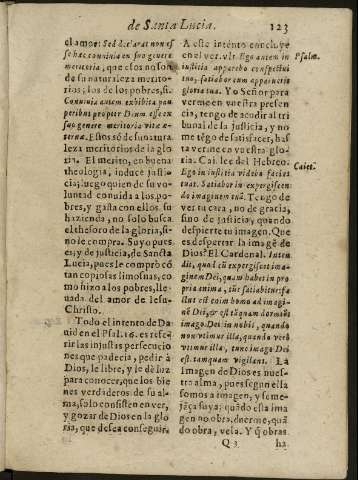 de Santa Lucia.
123
el amor: Sed declarat non es
se hæc conuiuia en suo genere
meritoria, que ellos no son
de su naturaleza merito-
rios; los de los pobres, si.
Conuiuia autem exhibita pau
peribus propter Deum esse en
suo genere meritoria vitæ æ-
ternæ. Essos sõ de su natura
leza meritorios de la glo
ria. El merito, en buena
theologia, induce justi-
cia; luego quien de su vo-
luntad conuida a los po-
bres, y gasta con ellos su
hazienda, no solo busca
el thesoro de la gloria, si-
no le compra. Suyo pues
es, y de justicia, de Sancta
Lucia, pues le comprò cõ
tan copiosas limosnas, co
mo hizo a los pobres, lle-
uada del amor de Iesu-
Christo.
Todo el intento de Da
uid en el Psal. 16. es refe-
rir las injustas persecucio
nes que padecia, pedir à
Dios, le libre, y le dè luz
para conocer, que los bie
nes verdaderos de su al-
ma, solo consisten en ver,
y gozar de Dios en la glo
ria, que dessea conseguir.
A este intento concluye
en el ver. vlt. Ego autem in
iustitia apparebo conspectui
tuo, satiabor cum apparuerit
gloria tua. Yo Señor para
verme en vuestra presen
cia, tengo de acudir al tri
bunal de la justicia, y no
me tẽgo de satisfacer, has
ta verme en vuestra glo-
ria. Cai. lee del Hebreo.
Ego in iustitia videbo facies
tuas. Satiabor in expergiscen
do imaginem tuã. Tengo de
ver tu cara, no de gracia,
sino de justicia, quando
despierte tu imagen. Que
es despertar la imagẽ de
Dios? El Cardenal. Inten
dit, quod cũ expergiscet ima-
ginem Dei, quam habet in pro
pria anima, tũc satiabitur: fa
ctus est enim homo ad imagi-
nẽ Dei, & est tãquam dormiẽs
imago Dei in nobis, quando
non vtimur illa, quando verò
vtimur illa, tunc imago Dei
est tamquam vigilans. La
Imagen de Dios es nues-
tra alma, pues segun ella
somos a imagen, y seme-
jãça suya; quãdo esta ima
gen no obra, duerme, quã
do obra, vela. Y q̃ obras
Psalm.
Caiet.
Q 3
ha